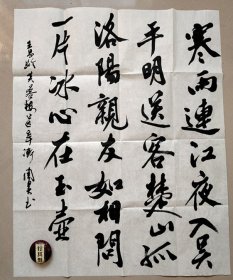 寒雨連江夜入吳
平明送客楚山孤
洛陽親友如相問
一片冰心在玉壺
王昌齡芙蓉樓送辛漸